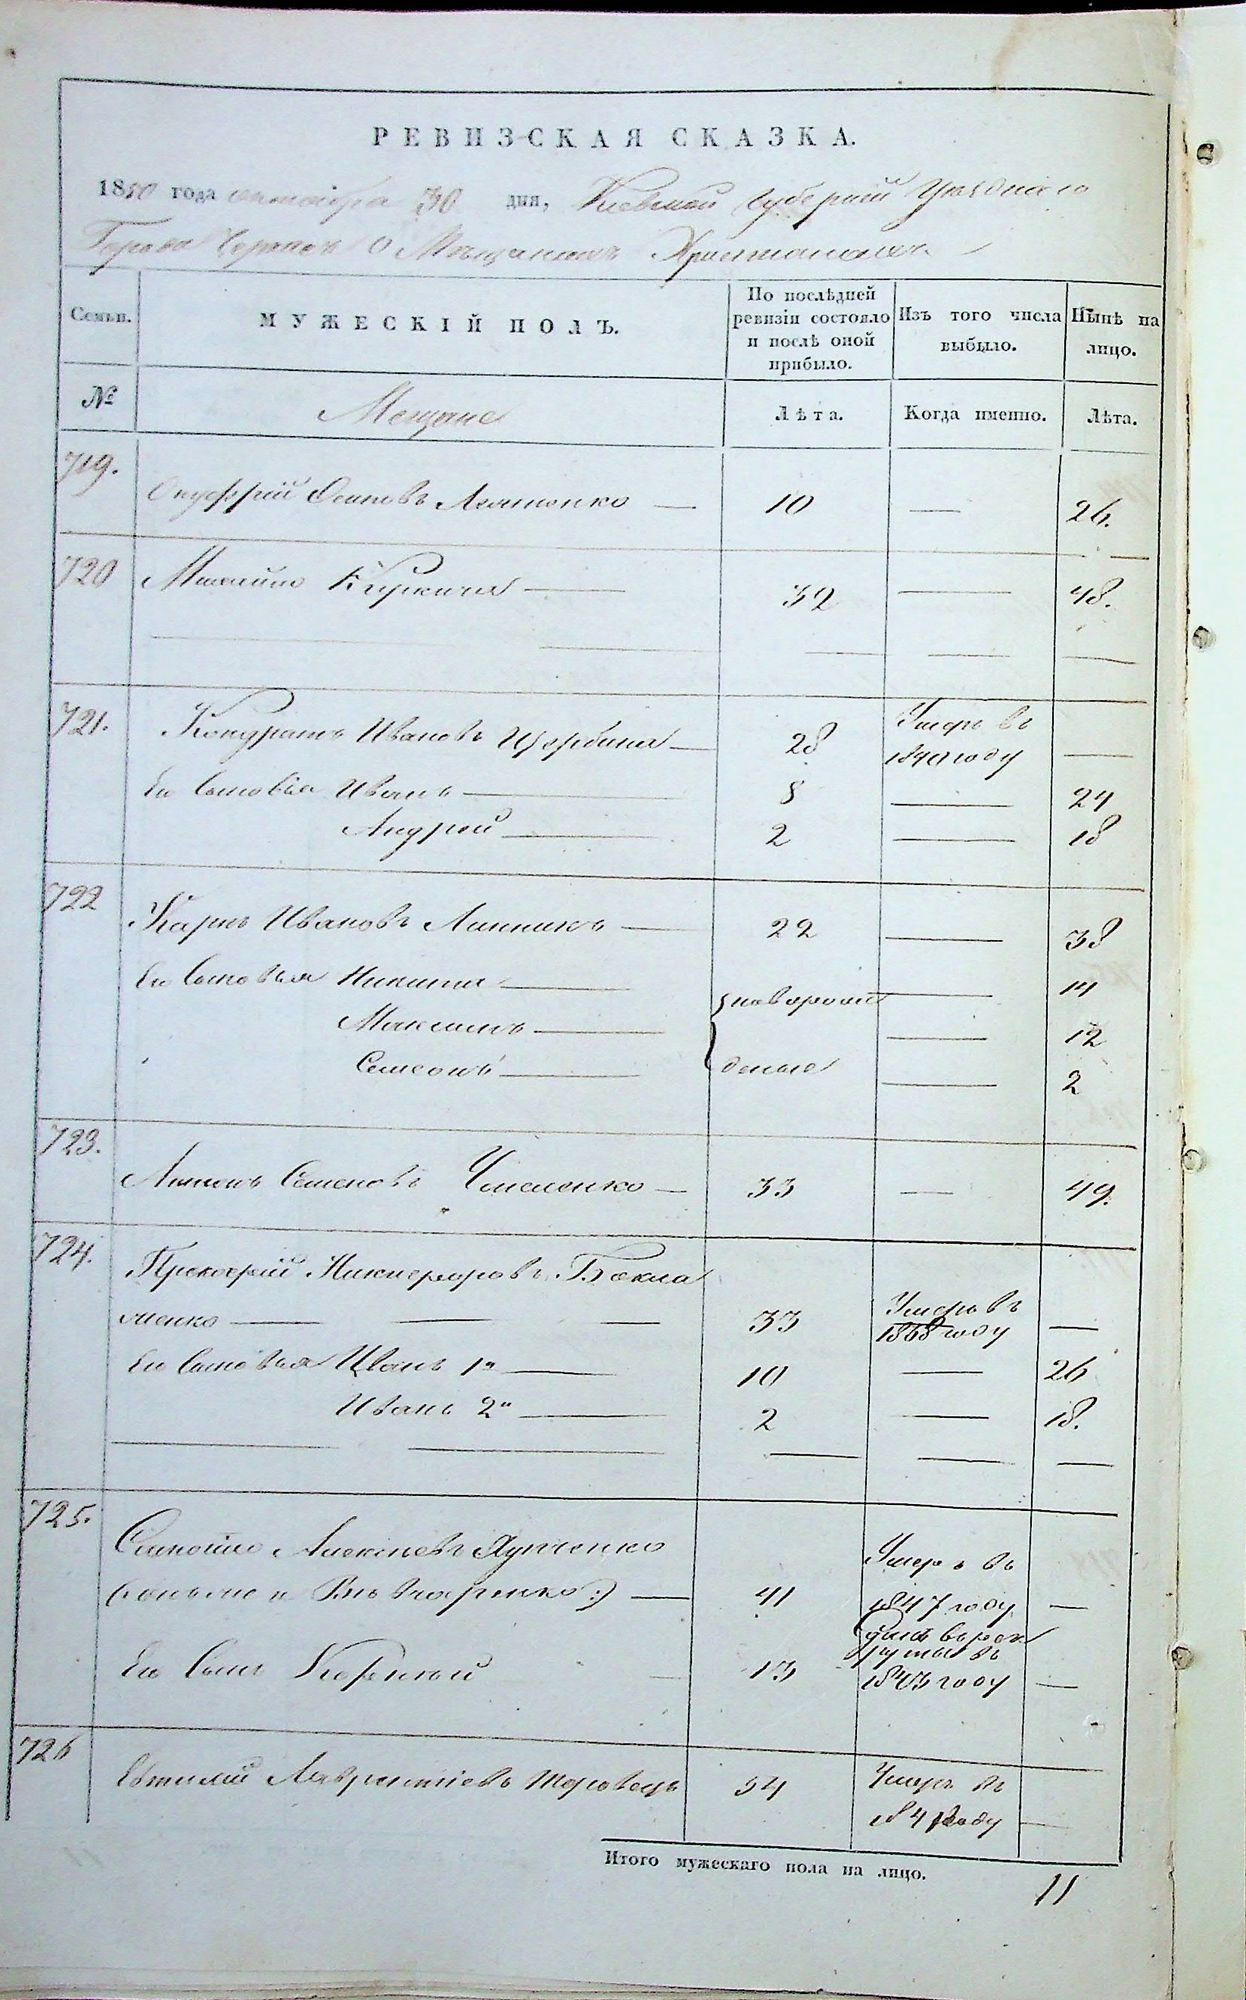 РЕВИЗСКАЯ СКАЗКА.
1850 года октября 30 дня, Киевской Губернии Уезднаго
Города Черкас о Мещанах Христианах
Семьи.
МУЖЕСКІЙ ПОЛЪ.
По послѣдней
ревизіи состояло
и послѣ оной
прибыло.
Изъ того числа
выбыло.
Нынѣ на
лицо.
№
Мещане
Лѣта.
Когда именно.
Лѣта.
719.
Онуфрій Осиповъ 10 — 26.
720 Михайло 32 — 48.
721. Кондратъ Ивановъ Щербина — 28 Умеръ въ
1840 году —
Его Сыновья Иванъ — 8 — 24
Андрей — 2 — 18
722
Карпъ Ивановъ Линникъ — 22 — 38
Его Сыновья Никита — новорож — 14
Максимъ — — 12
Семенъ — денные — 2
723.
Антонъ Семеновъ Чмеленко — 33 — 49.
724.
Прокофій Никифоровъ Бакла
ненко — 33 Умеръ въ
1838 году —
Его Сыновья Иванъ 1й — 10 — 26
Иванъ 2й — 2 — 18.
725.
Самойло Алексѣевъ
41 Умеръ въ
1847 году —
Его Сынъ 13 Отданъ въ рек
руты въ
1843 году —
726
Евтихій Лаврентіевъ 54 Умеръ въ
году —
Итого мужескаго пола на лицо.
11